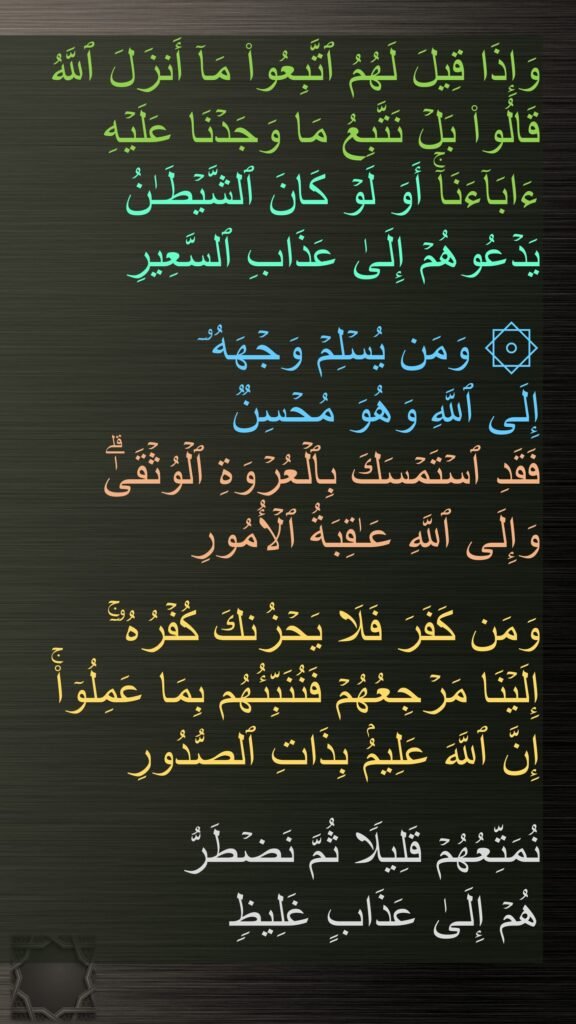 وَإِذَا قِيلَ لَهُمُ ٱتَّبِعُواْ مَآ أَنزَلَ ٱللَّهُ
قَالُواْ بَلۡ نَتَّبِعُ مَا وَجَدۡنَا عَلَيۡهِ
ءَابَآءَنَآۚ أَوَ لَوۡ كَانَ ٱلشَّيۡطَـٰنُ
يَدۡعُوهُمۡ إِلَىٰ عَذَابِ ٱلسَّعِيرِ
۞ وَمَن يُسۡلِمۡ وَجۡهَهُۥٓ
إِلَى ٱللَّهِ وَهُوَ مُحۡسِنٌ
فَقَدِ ٱسۡتَمۡسَكَ بِٱلۡعُرۡوَةِ ٱلۡوُثۡقَىٰۗ
وَإِلَى ٱللَّهِ عَـٰقِبَةُ ٱلۡأُمُورِ
وَمَن كَفَرَ فَلَا يَحۡزُنكَ كُفۡرُهُۥٓۚ
إِلَيۡنَا مَرۡجِعُهُمۡ فَنُنَبِّئُهُم بِمَا عَمِلُوٓاْۚ
إِنَّ ٱللَّهَ عَلِيمُۢ بِذَاتِ ٱلصُّدُورِ
نُمَتِّعُهُمۡ قَلِيلًا ثُمَّ نَضۡطَرُّ
هُمۡ إِلَىٰ عَذَابٍ غَلِيظٍ